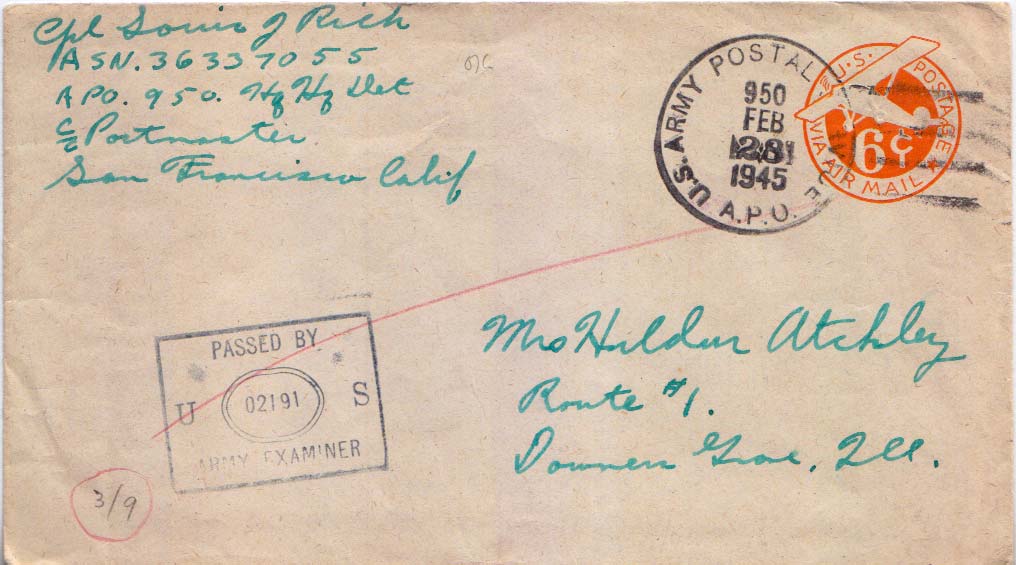 Cpl Louis J Rich
ASN. 36337055
APO. 950. Hq Hq Det
c/o Postmaster
San Francisco Calif
U.S. ARMY POSTAL
A.P.O.
950
FEB
28
1945
U.S. POSTAGE
6¢
VIA AIR MAIL
Mrs Hildur Atchley
Route #1.
Downers Grove, Ill.
PASSED BY
U 02191 S
ARMY EXAMINER
3/9